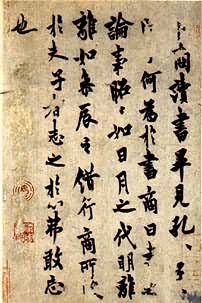 卜商讀書畢見孔、子、
何為於書商曰書之
論事昭、如日月之代明離
離如參辰之錯行商所
於夫子者志之於心弗敢忘
也